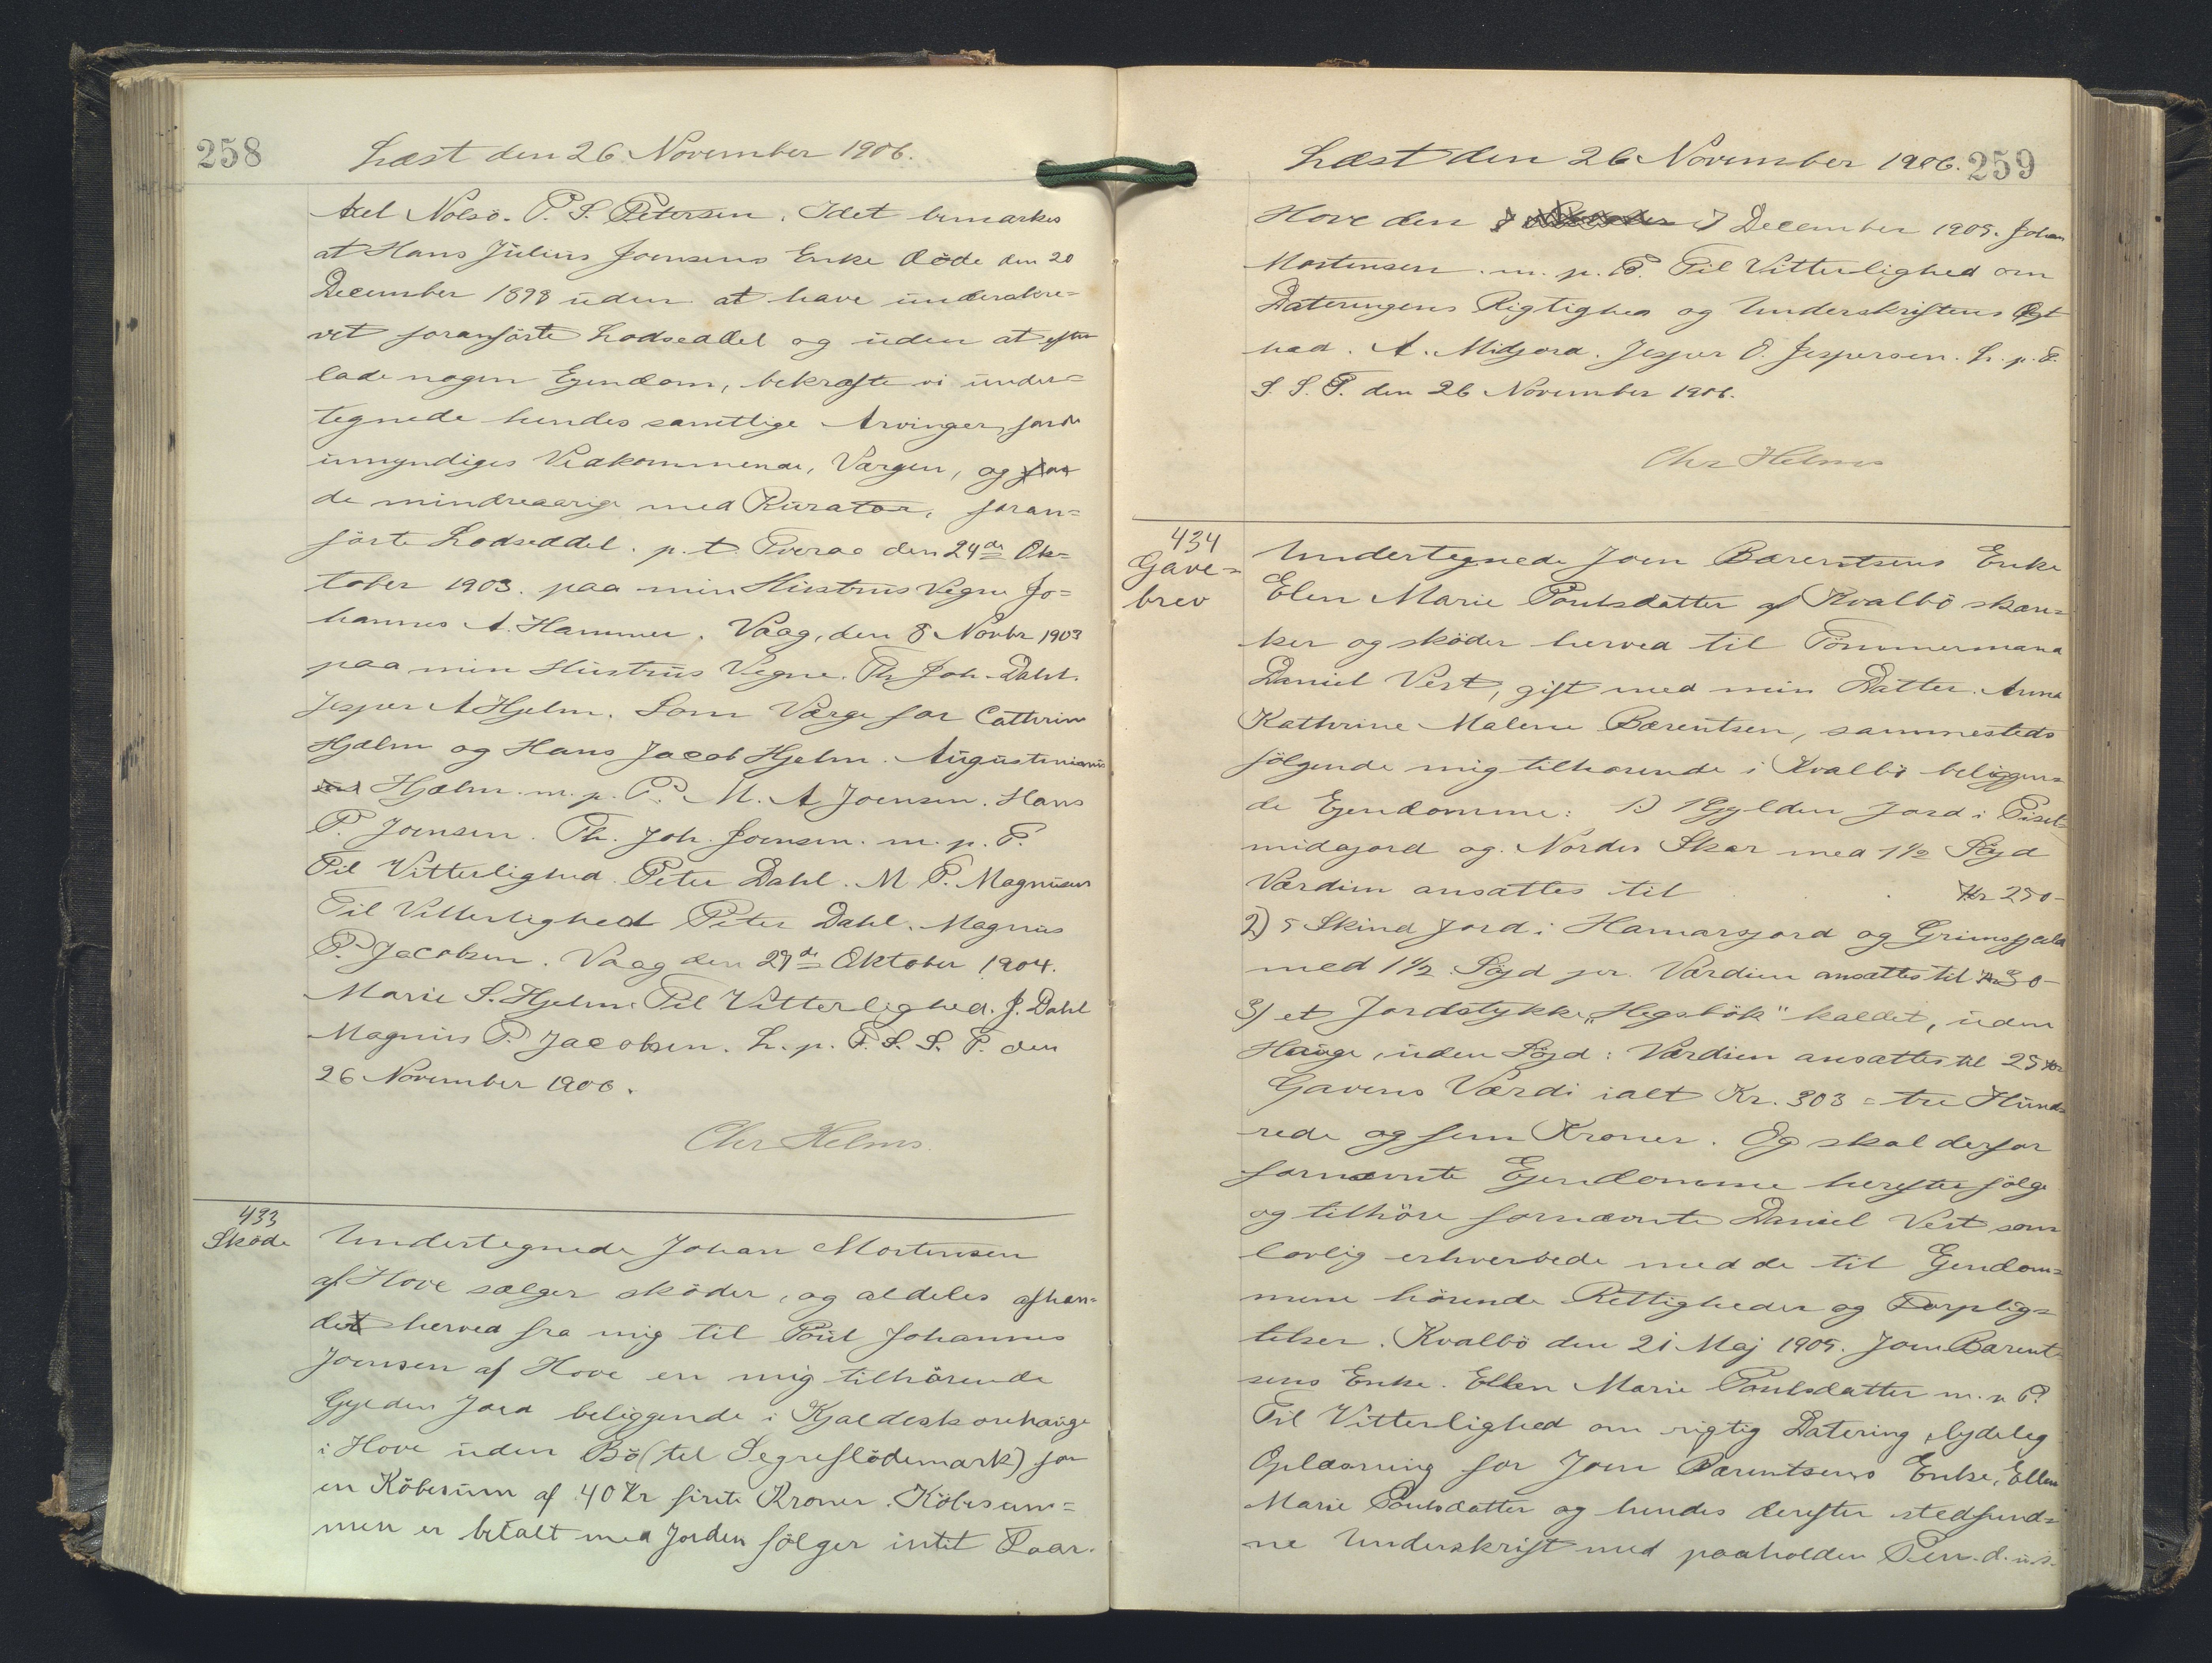 258
Læst den 26 November 1906.
Axel Nolsö. P. S. Petersen. Idet bemærkes
at Hans Julius Joensens Enke döde den 20
December 1898 uden at have underskre=
vet foranförte Lodseddel og uden at efter
lade nogen Ejendom, bekræfte vi under=
tegnede hendes samtlige Arvinger, for de
umyndiges Vedkommende, Værgen, og for
de mindreaarige med Kurator, foran=
förte Lodseddel. p. t. Tveraa den 24de Ok=
tober 1903. paa min Hustrus Vegne Jo=
hannes A. Hammer. Vaag, den 8 Novbr 1903
paa min Hustrus Vegne. Th. Joh. Dahl.
Jesper A Hjelm. Som Værge for Cathrine
Hjælm og Hans Jacob Hjelm. Augustinius
Hjælm. m. p. P. M. A Joensen. Hans
P. Joensen. Th. Joh. Joensen. m. p. P.
Til Vitterlighed Peter Dahl. M. P. Magnusen
Til Vitterlighed Peter Dahl. Magnus
P. Jacobsen. Vaag den 29de Oktober 1904.
Marie S. Hjelm. Til Vitterlighed. J. Dahl
Magnus P. Jacobsen. L. p. F. S. S. T. den
26 November 1906.
Chr Helms.
433
Sköde
Undertegnede Johan Mortensen
af Hove sælger sköder, og aldeles afhæn=
det herved fra mig til Poul Johannes
Joensen af Hove en mig tilhörende
Gylden Jord beliggende i Kjaldeskorehauge
i Hove uden Bö (til Segreflödemark) for
en Köbesum af 40 Kr firti Kroner. Köbesum=
men er betalt med Jorden fölger intet Faar.
259
Læst den 26 November 1906.
Hove den 7 December 1905. Johan
Mortensen. m. p. P. Til Vitterlighed om
Dateringens Rigtighed og Underskriftens Ægt
hed. A. Midjord. Jesper O. Jespersen. L. p. F.
S. S. T. den 26 November 1906.
Chr Helms
434
Gave=
brev
Undertegnede Joen Bærentsens Enke
Elen Marie Poulsdatter af Kvalbö skæn=
ker og sköder herved til Tömmermand
Daniel Vest, gift med min Datter. Anna
Kathrine Malene Bærentsen, sammesteds
fölgende mig tilhørende i Kvalbö beliggen=
de Ejendomme: 1.) 1 Gylden Jord i
midgjord og. Nordes Skar med 1½ Söjd
Værdien ansættes til . Kr 250-
2) 5 Skind Jord i Hamarsjord og Grimsfjeld
med 1½ Söjd pr. Værdien ansættes til Kr 30-
3) et Jordstykke "Hegsbök" kaldet, uden
Hauge, uden Söjd: Værdien ansættes til 25 Kr
Gavens Værdi ialt Kr. 303 = tre Hund=
rede og fem Kroner. Og skal derfor
fornævnte Ejendomme herefter fölge
og tilhöre fornævnte Daniel Vest som
lovlig erhvervede med de til Ejendom=
mene hörende Rettigheder og Forplig=
telser. Kvalbö den 21 Maj 1905. Joen Bærent
sens Enke. Ellen Marie Poulsdatter m. p. P.
Til Vitterlighed om rigtig Datering, lydelig
Oplæsning for Joen Bærentsens Enke, Ellen
Marie Poulsdatter og hendes derefter stedfund=
ne Underskrift med paaholden Pen. d. u. s.